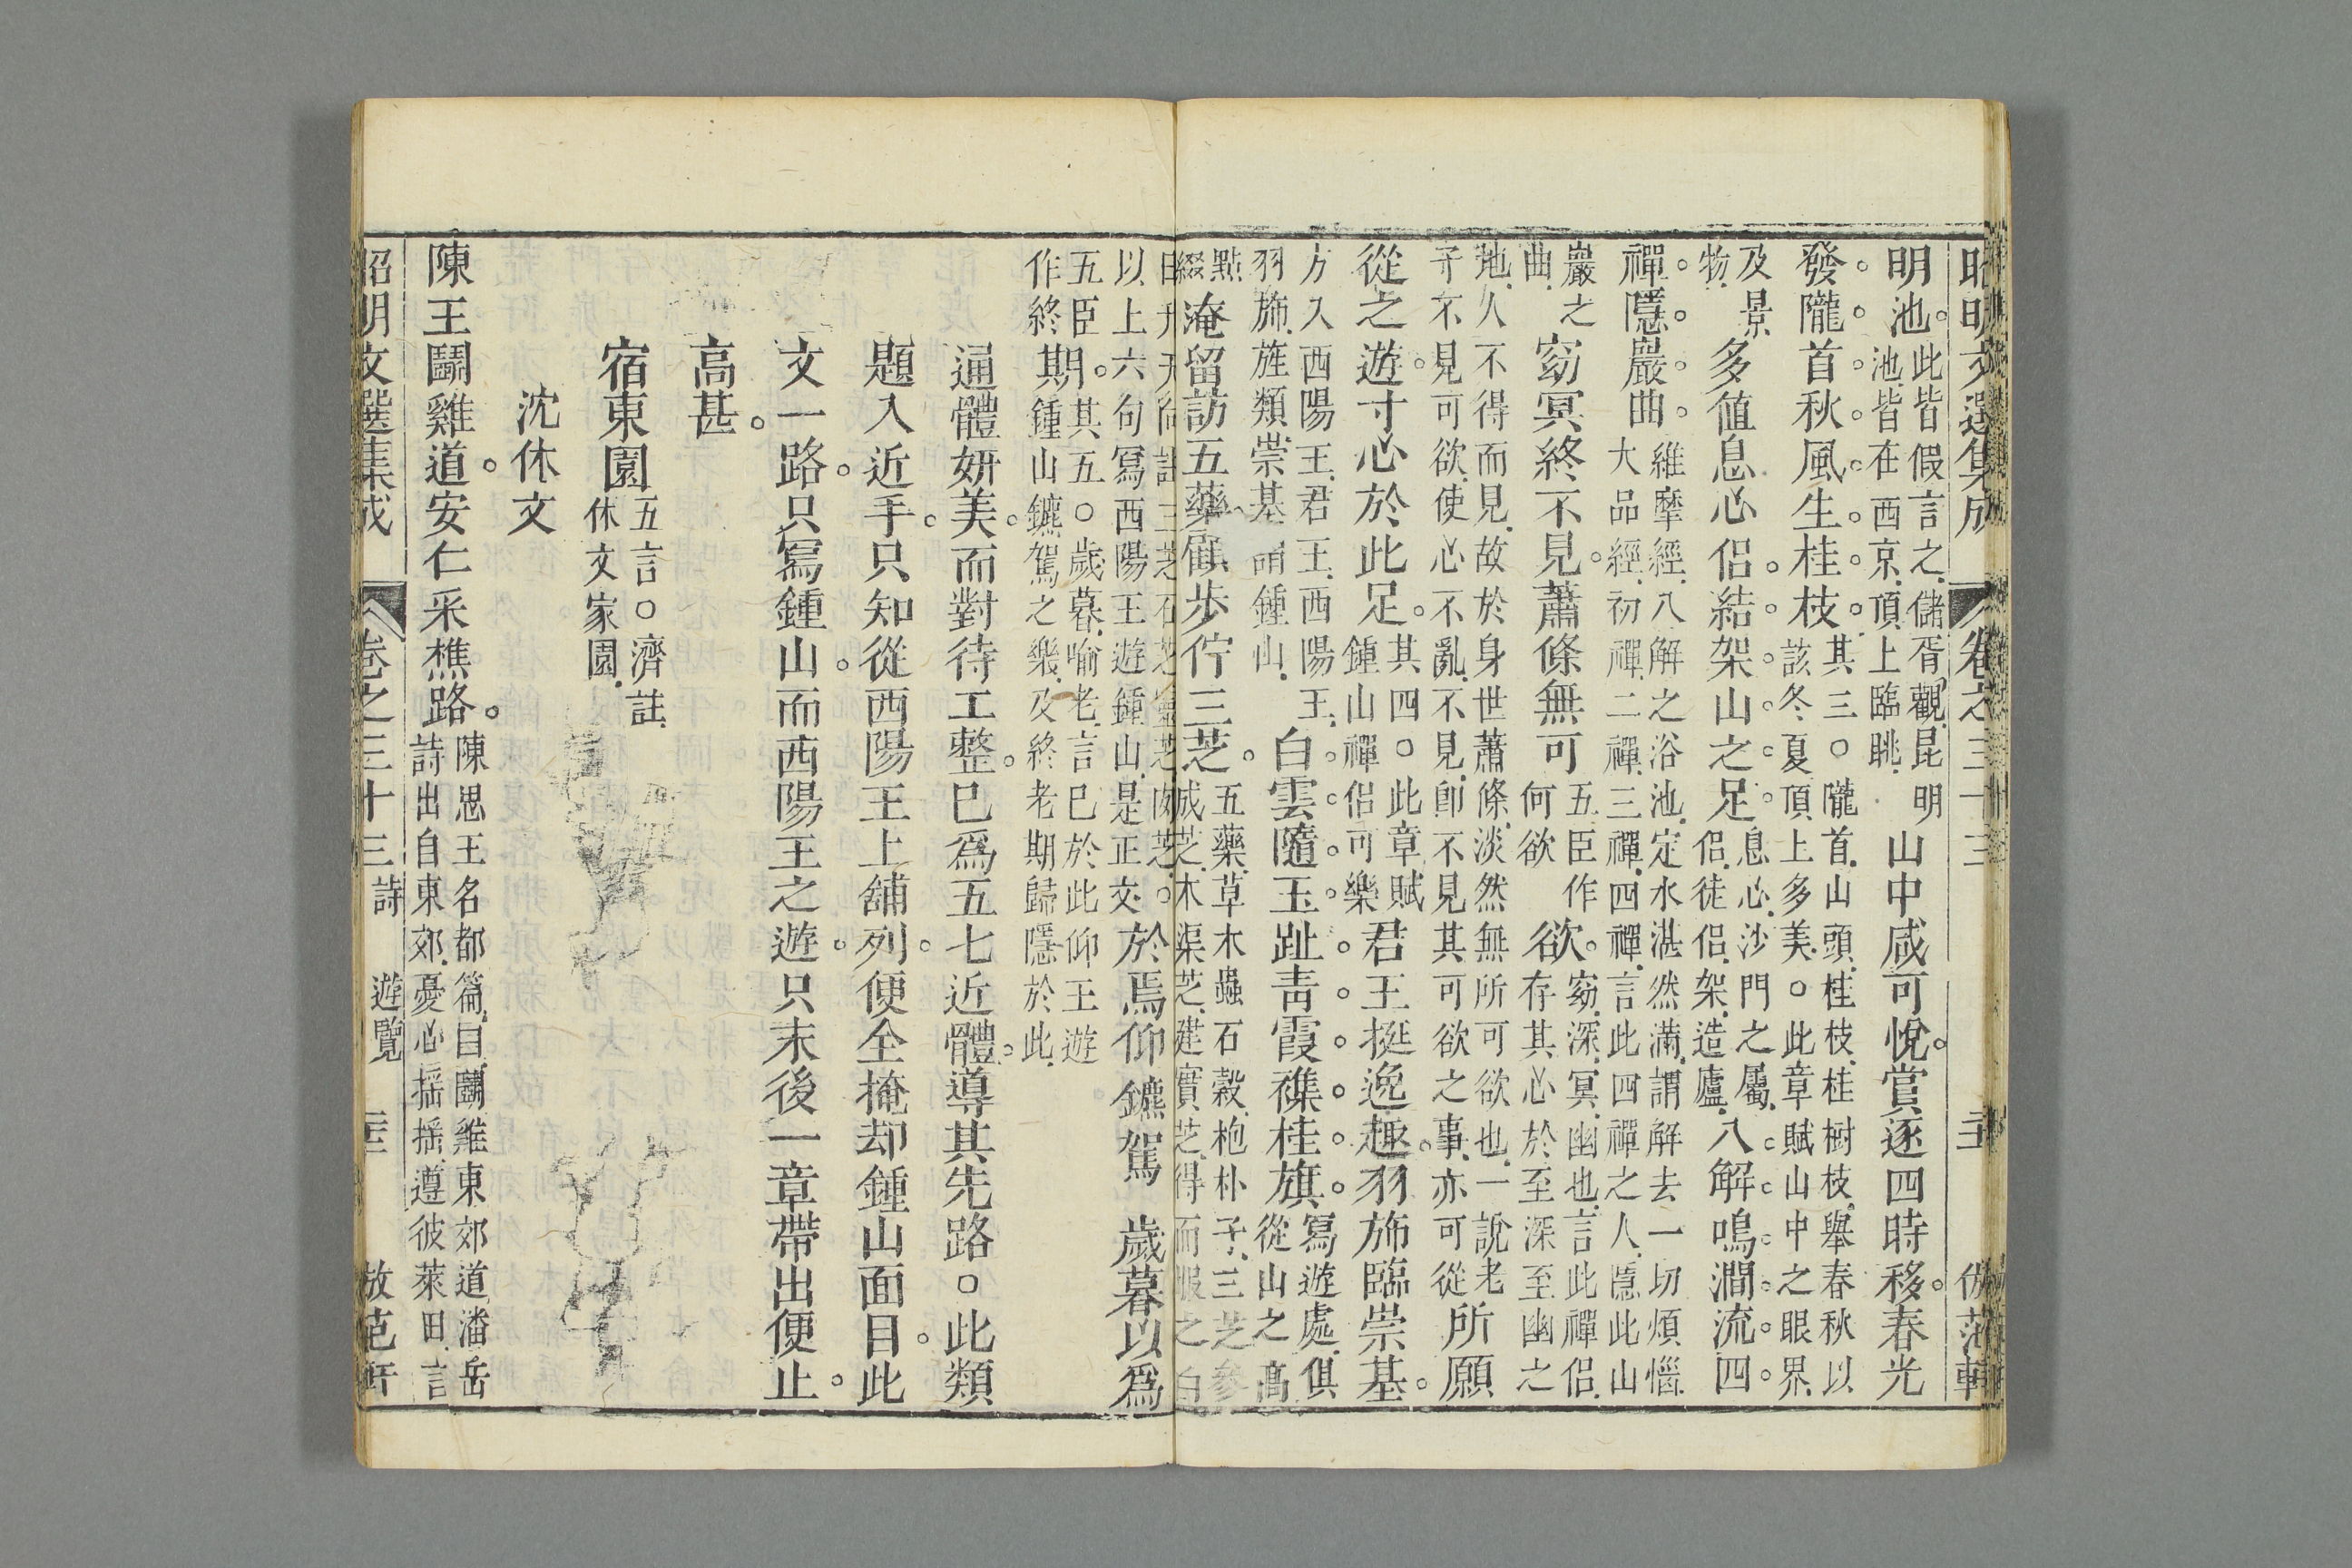 昭明文選集成 卷之三十三 二十 倣范軒
明池此皆假言之儲胥觀昆明
池皆在西京頂上臨眺山中咸可悅賞逐四時移春光
發隴首秋風生桂枝其三○隴首山頭桂枝桂樹枝舉春秋以
該冬夏頂上多美○此章賦山中之眼界
及景
物多値息心侶結架山之足息心沙門之屬
侶徒侶架造廬八解鳴澗流四
禪隱巖曲維摩經八解之浴池定水湛然滿謂解去一切煩惱
大品經初禪二禪三禪四禪言此四禪之人隱此山
巖之
曲窈冥終不見蕭條無可五臣作
何欲欲窈深冥幽也言此禪侶
存其心於至深至幽之
地人不得而見故於身世蕭條淡然無所可欲也一說老
子不見可欲使心不亂不見卽不見其可欲之事亦可從所願
從之遊寸心於此足其四○此章賦
鍾山禪侶可樂君王挺逸趣羽旆臨崇基
方入西陽王君王西陽王
羽旆旌類崇基謂鍾山白雲隨玉趾靑霞襍桂旗寫遊處俱
從山之高
點
綴淹留訪五藥顧步佇三芝五藥草木蟲石穀枹朴子三芝參
成芝木渠芝建實芝得而服之白
日升天向註三芝石芝靈芝肉芝○
以上六句寫西陽王遊鍾山是正文於焉仰鑣駕 歲暮以爲
五臣
作終期其五○歲暮喻老言已於此仰王遊
鍾山鑣駕之樂及終老期歸隱於此
通體姸美而對待工整已爲五七近體導其先路○此類
題入近手只知從西陽王上舖列便全掩却鍾山面目此
文一路只寫鍾山而西陽王之遊只末後一章帶出便止
高甚
宿東園五言○濟註
休文家園
沈休文
陳王鬭雞道安仁采樵路陳思王名都篇曰鬭雞東郊道潘岳
詩出自東郊憂心搖搖遵彼萊田言
昭明文選集成 卷之三十三 詩 遊覽 二十 倣范軒